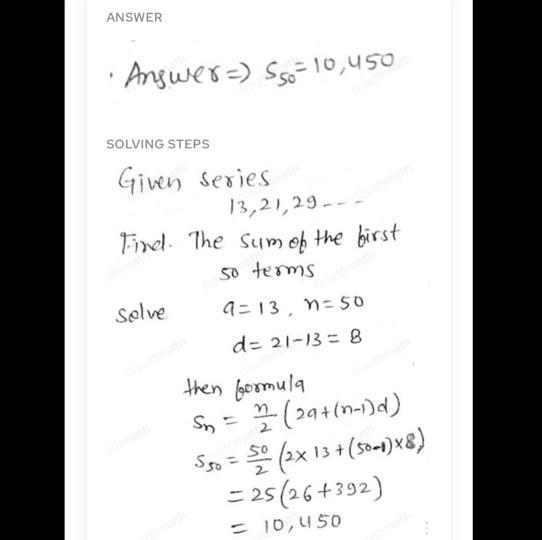 ANSWER
. Answer => S50 = 10,450
SOLVING STEPS
Given series
13, 21, 29 - - -
Find. The sum of the first
50 terms
Solve a = 13, n = 50
d = 21-13 = 8
then formula
Sn = n/2 (2a+(n-1)d)
S50 = 50/2 (2x13+(50-1)x8)
= 25(26+392)
= 10,450